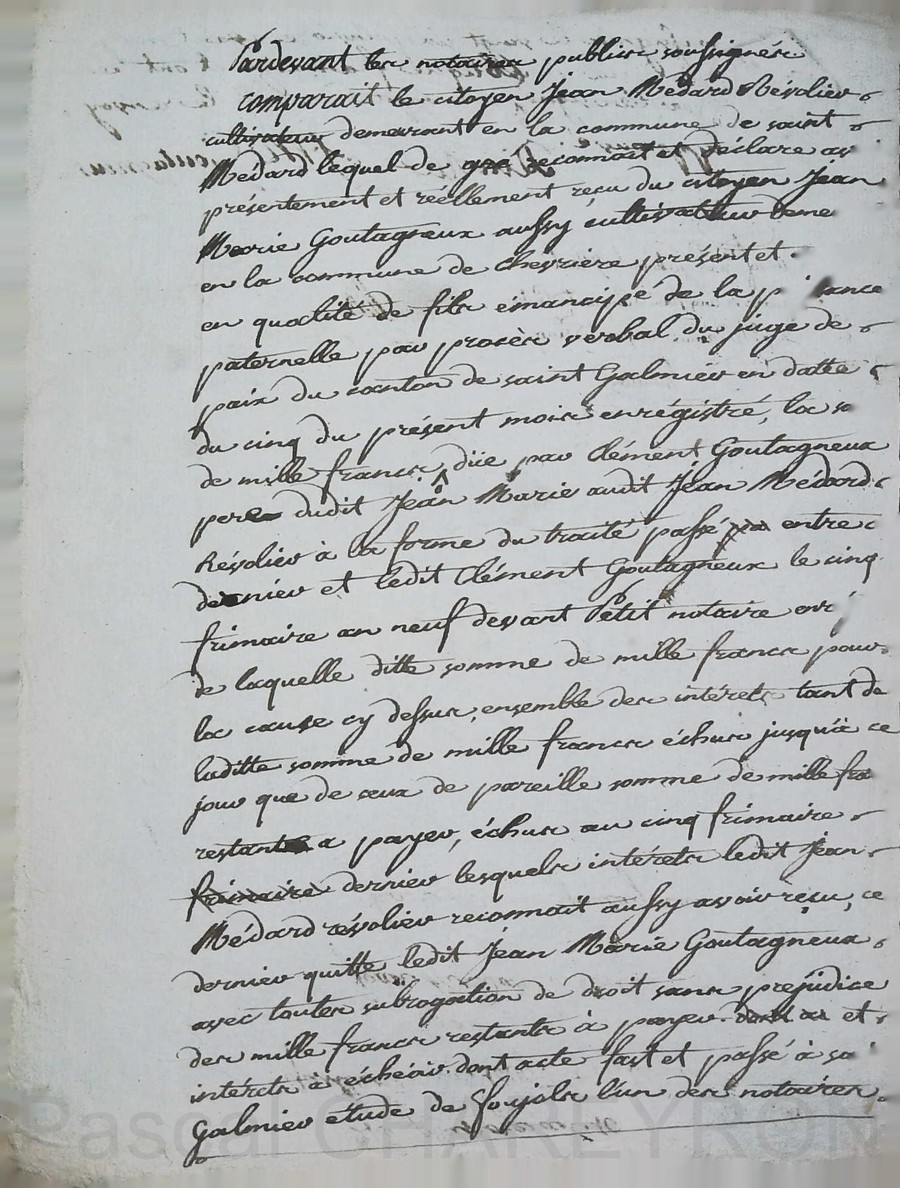 Pardevant les notaires publics soussignés
comparait le citoyen Jean Médard Révolier
cultivateur demeurant en la commune de saint
Médard lequel de gré reconnait et déclare av
présentement et réellement recu du citoyen Jean
Marie Goutagneux aussy cultivateur deme
en la commune de chevriere présent et
en qualité de fils émancipé de la p ance
paternelle par procès verbal du juge de
paix du canton de saint Galmier en datte
du cinq du présent mois enrégistré, la so
de mille francs, düe par Clément Goutagneux
pere dudit Jean Marie audit Jean Médard
Révolier à la forme du traité passé entre
dernier et ledit Clément Goutagneux le cinq
frimaire an neuf devant Petit notaire
de laquelle ditte somme de mille francs pour
la cause cy dessus, ensemble des intérets tant de
laditte somme de mille francs échus jusqu'à ce
jour que de ceux de pareille somme de mille fra
restante a payer, échus au cinq frimaire
frimaire dernier lesquels intérets ledit Jean
Médard révolier reconnait aussy avoir reçu, ce
dernier quitte ledit Jean Marie Goutagneux
avec toutes subrogation de droit sans prejúdice
des mille francs restants à payer et
intérets à échéoir dont acte fait et passé à sa
Galmier étude de Soujols l'un des notaires
Pascal CHARLEYRON